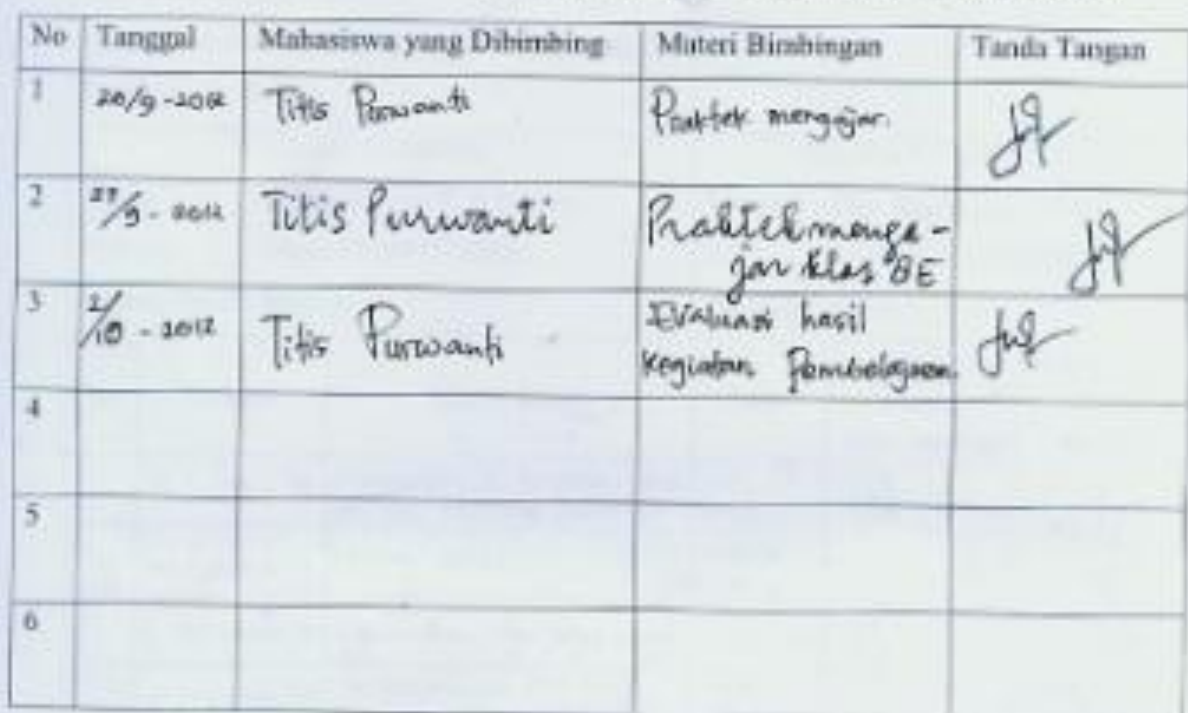 No Tanggal Mahasiswa yang Dibimbing Materi Bimbingan Tanda Tangan
1 20/9-2012 Titis Purwanti Praktek mengajar.
2 27/9-2012 Titis Purwanti Praktek menga-
jar klas 8E
3 2/10-2012 Titis Purwanti Evaluasi hasil
kegiatan Pembelajaran
4
5
6